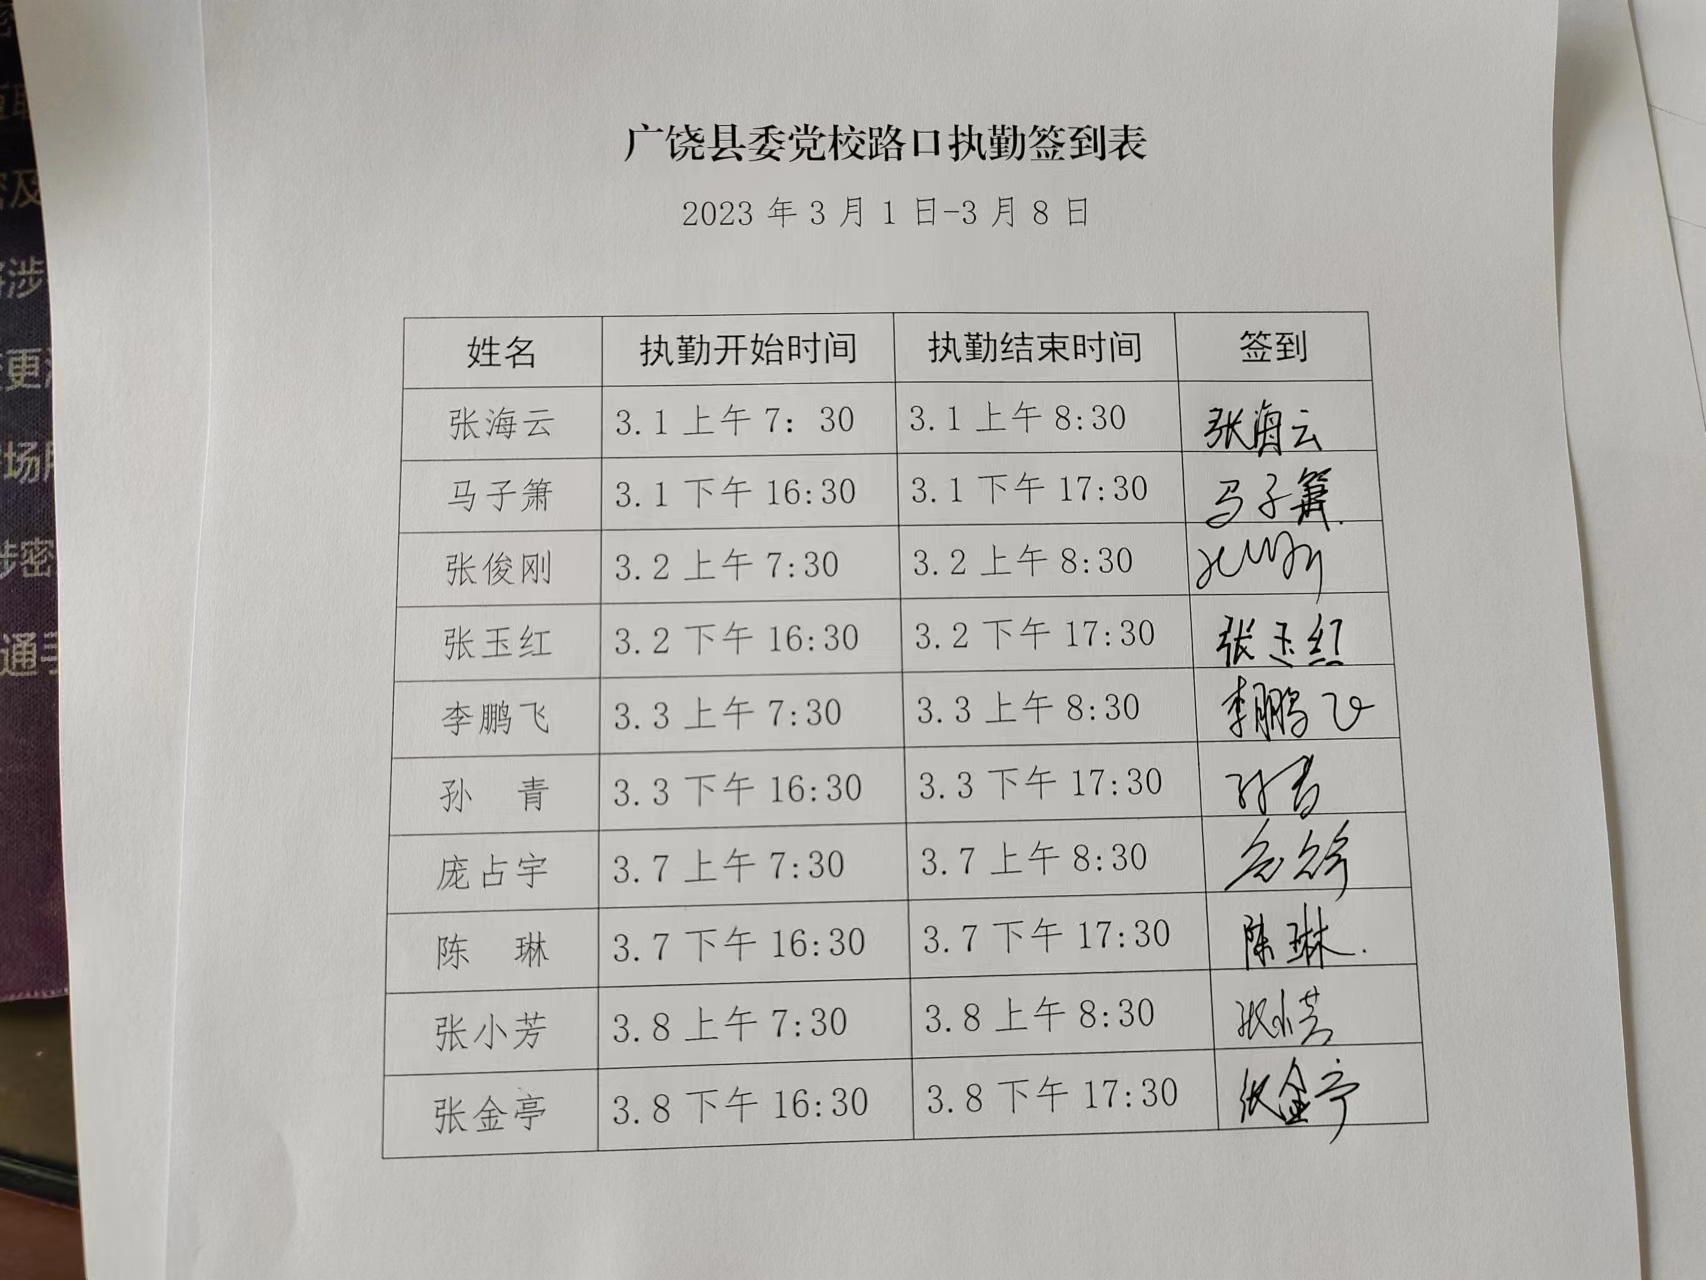 广饶县委党校路口执勤签到表
2023 年 3 月 1 日-3 月 8 日
姓名 执勤开始时间 执勤结束时间 签到
张海云 3.1 上午 7：30 3.1 上午 8:30 张海云
马子箫 3.1 下午 16:30 3.1 下午 17:30 马子箫
张俊刚 3.2 上午 7:30 3.2 上午 8:30
张玉红 3.2 下午 16:30 3.2 下午 17:30 张玉红
李鹏飞 3.3 上午 7:30 3.3 上午 8:30 李鹏飞
孙 青 3.3 下午 16:30 3.3 下午 17:30 孙青
庞占宇 3.7 上午 7:30 3.7 上午 8:30
陈 琳 3.7 下午 16:30 3.7 下午 17:30 陈琳
张小芳 3.8 上午 7:30 3.8 上午 8:30 张小芳
张金亭 3.8 下午 16:30 3.8 下午 17:30 张金亭
及
涉
更
场
涉密
通手